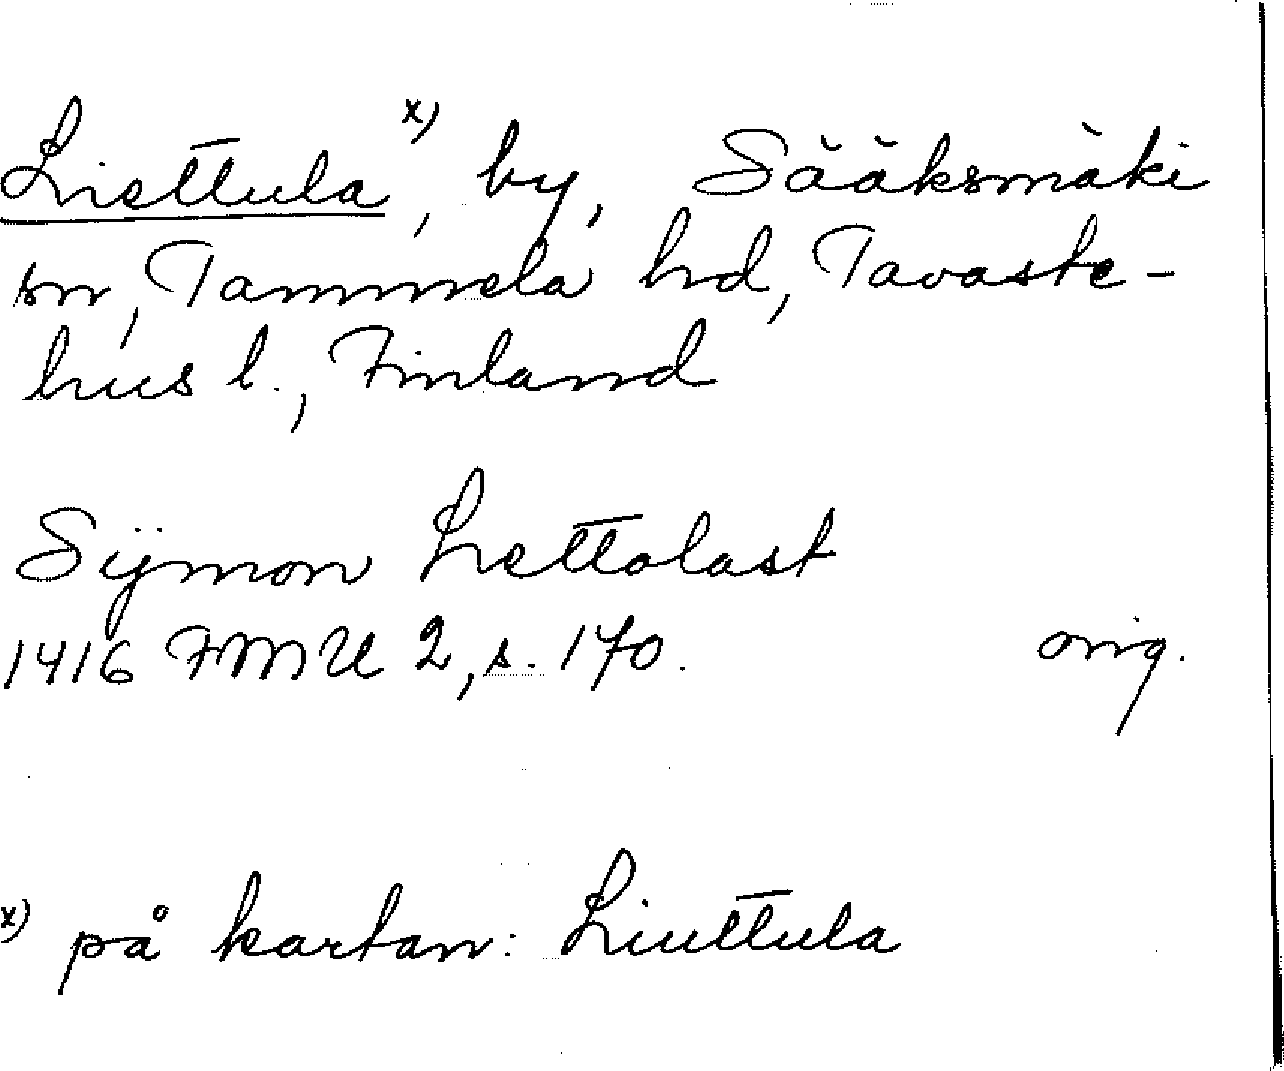 Liettula x), by, Sääksmäki
sn, Tammela hd, Tavaste-
hus l., Finland
Sijmon Liettolast
1416 FMU 2, s. 170. orig.
x) på kartan: Liuttula